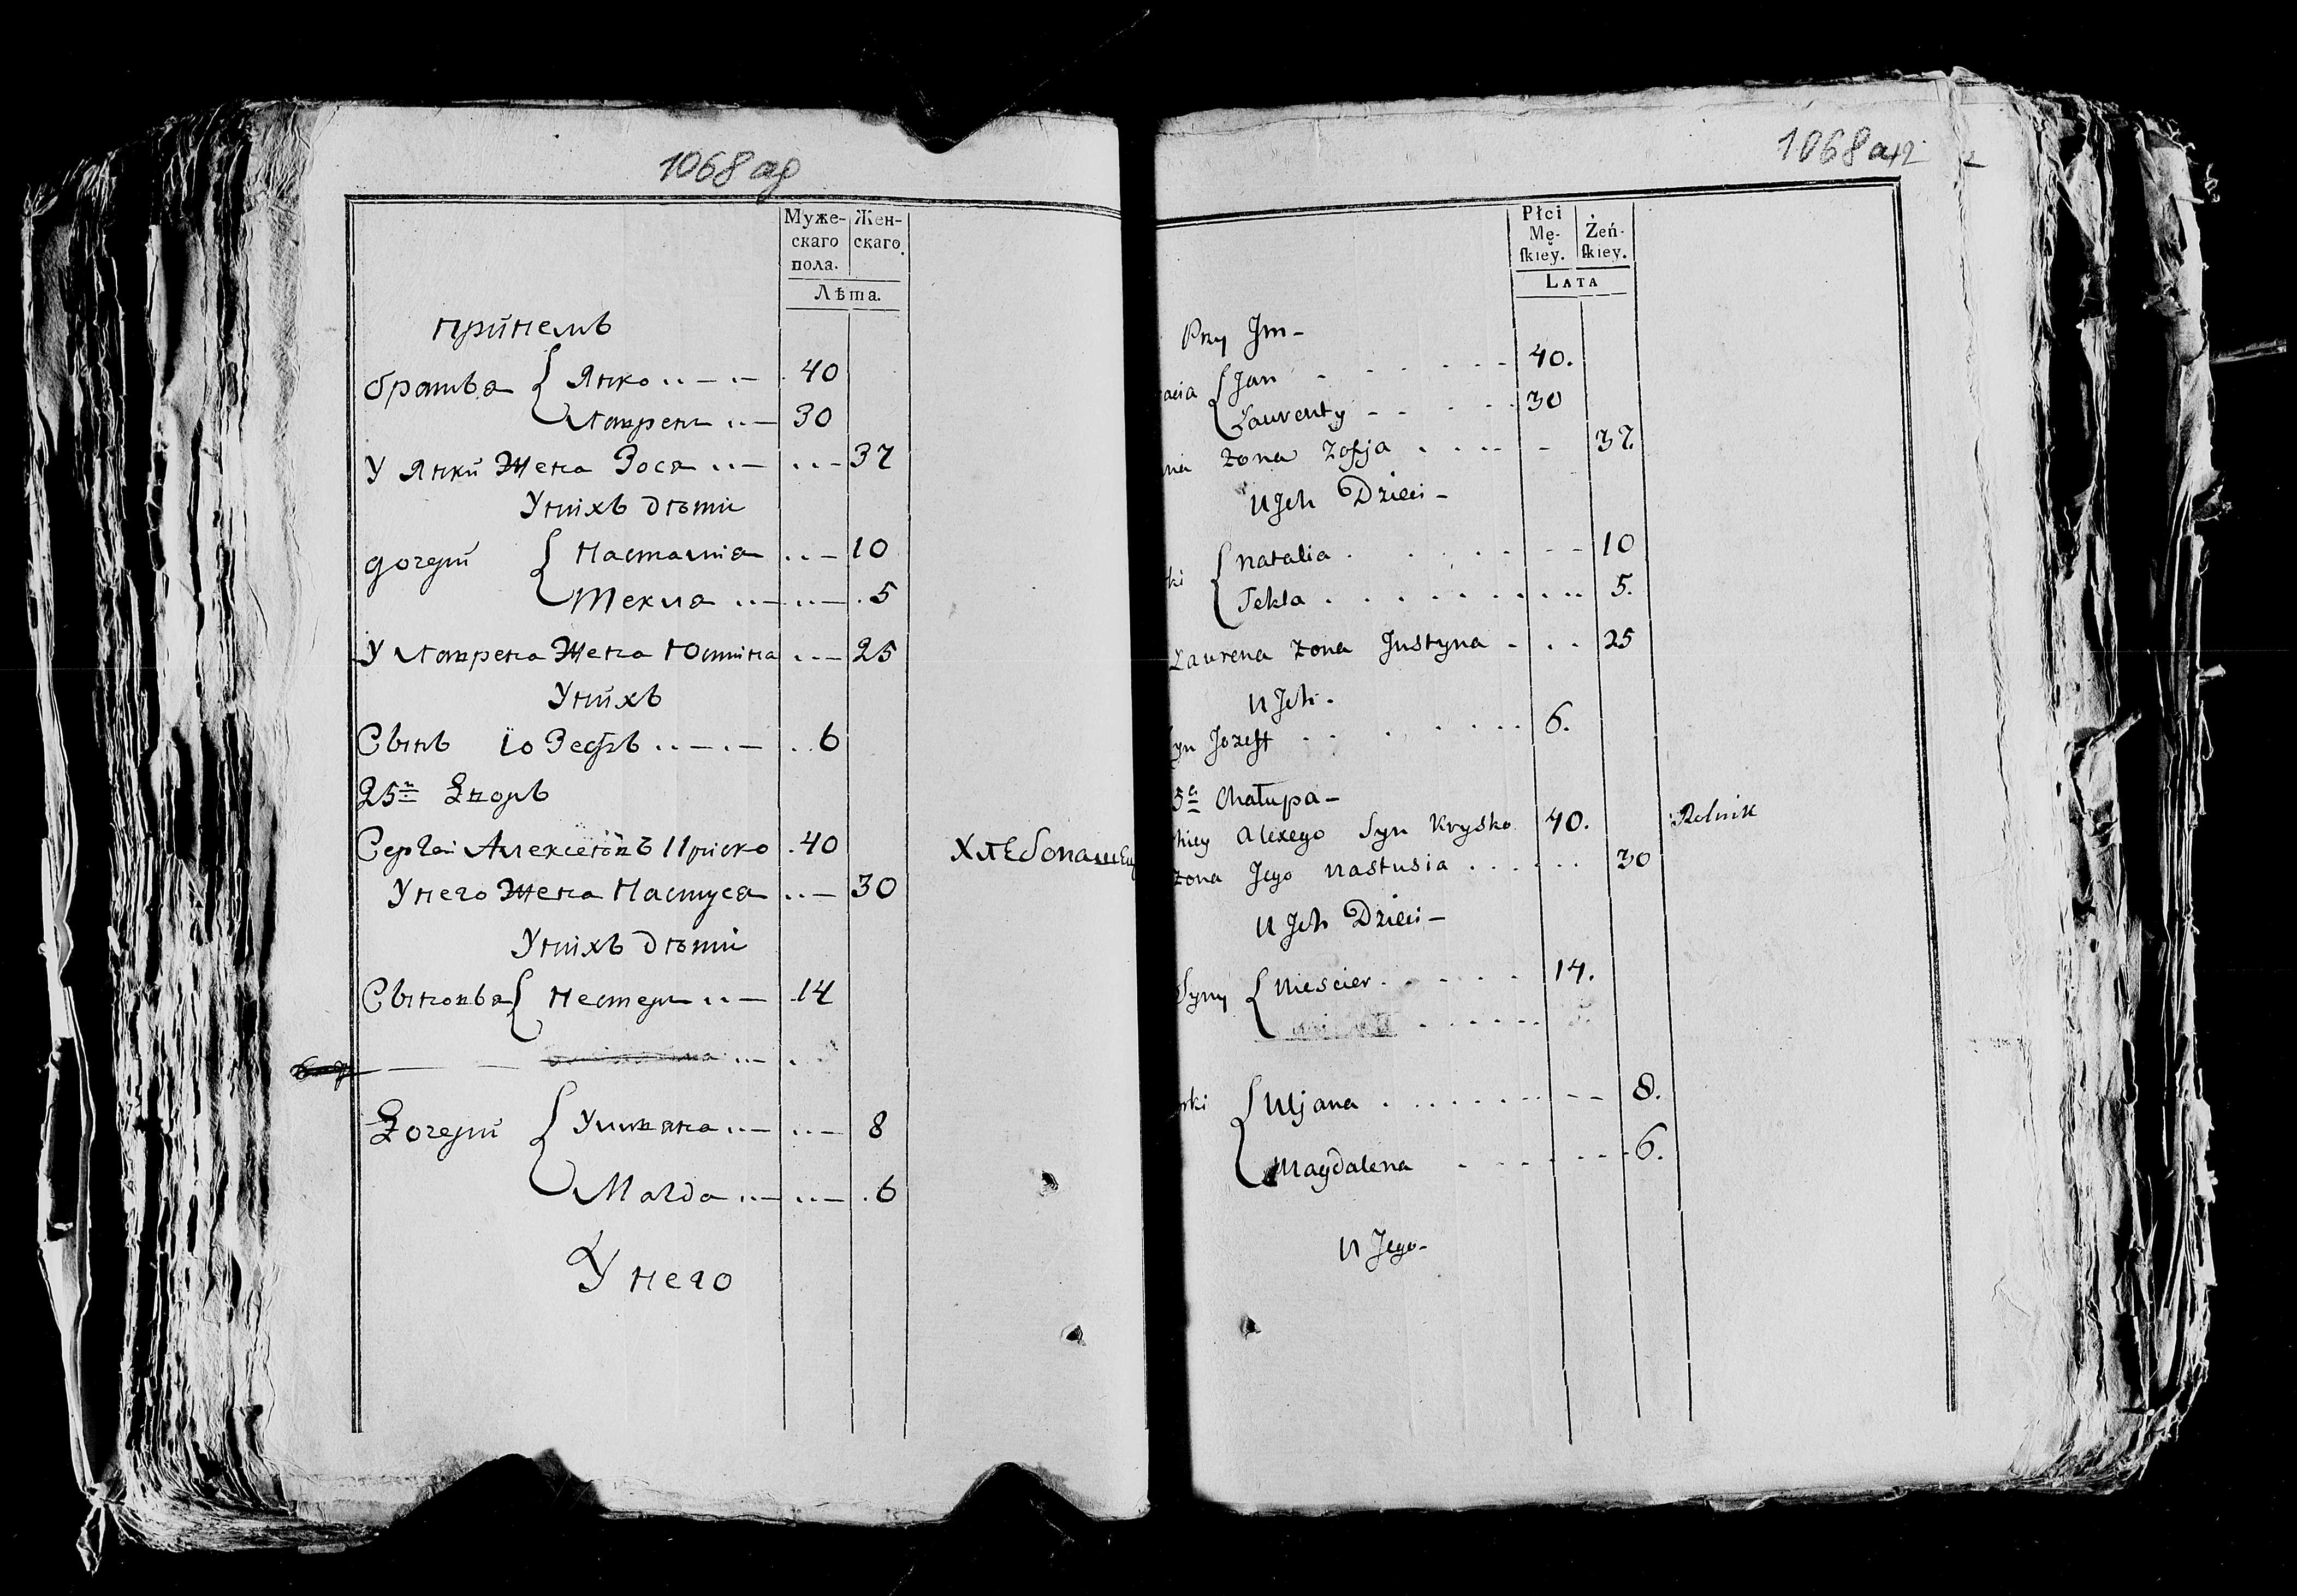 1068
Муже-
скаго
пола.
Жен-
скаго.
Лѣта.
при немъ
братья { Янко 40
Лаврен 30
У Янки Жена Зося 37
У нихъ дѣти
дочери { Насталия 10
Текла 5
У Лаврена Жена Юстина 25
У нихъ
Сынъ Іозефъ 6
25й Дворъ
Сергей Алексеевъ 40
Хлебопашец
У него Жена Настуся 30
У нихъ дѣти
Сыновья { Нестер 14
Дочери { Ульяна 8
Магда 6
У него
1068
Płci
Mę-
ſkiey.
Żeń-
ſkiey.
LATA
Przy Jm -
acia { Jan 40.
Laurenty 30
na żona Zofja 37.
U Jch Dzieci -
ki { Natalia 10
Tekla 5.
Laurena żona Justyna 25
U Jch -
yn Jozeff 6.
5a Chałupa -
hiey Alexego Syn Kryśko 40. Rolnik
żona Jego Nastusia 30
U Jch Dzieci -
Syny { Nieścier 14.
rki { Uljana 8.
Magdalena 6.
U Jego -